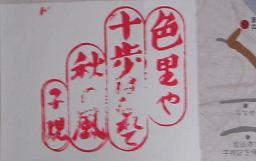 色里や
十歩はなれて
秋の風
子規